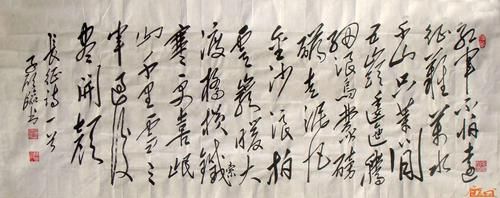 紅軍不怕遠
征難萬水
千山只等閒
五嶺逶迤騰
細浪烏蒙磅
礴走泥丸
金沙浪拍
雲崖暖大
渡橋横鐵索
寒更喜岷
山千里雪三
軍過後
盡開顏
長征詩一首